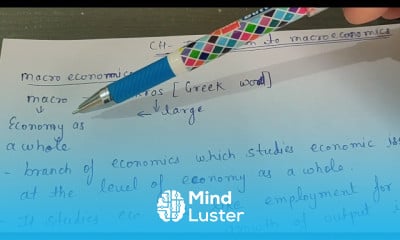 CH- to macroeconomics
macro economics
macro ros [Greek word]
↓ ↓
Economy as ← large
a whole
- branch of economics which studies economic
at the level of economy as a whole.
- It studies eco like employment for
growth of output
Mind
Luster